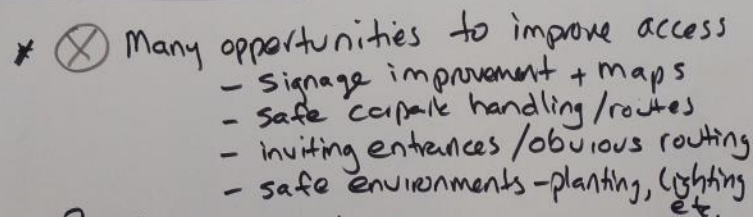 * ⓧ Many opportunities to improve access
- Signage improvement + maps
- safe carpark handling/routes
- inviting entrances/obvious routing
- safe environments - planting, lighting
etc.